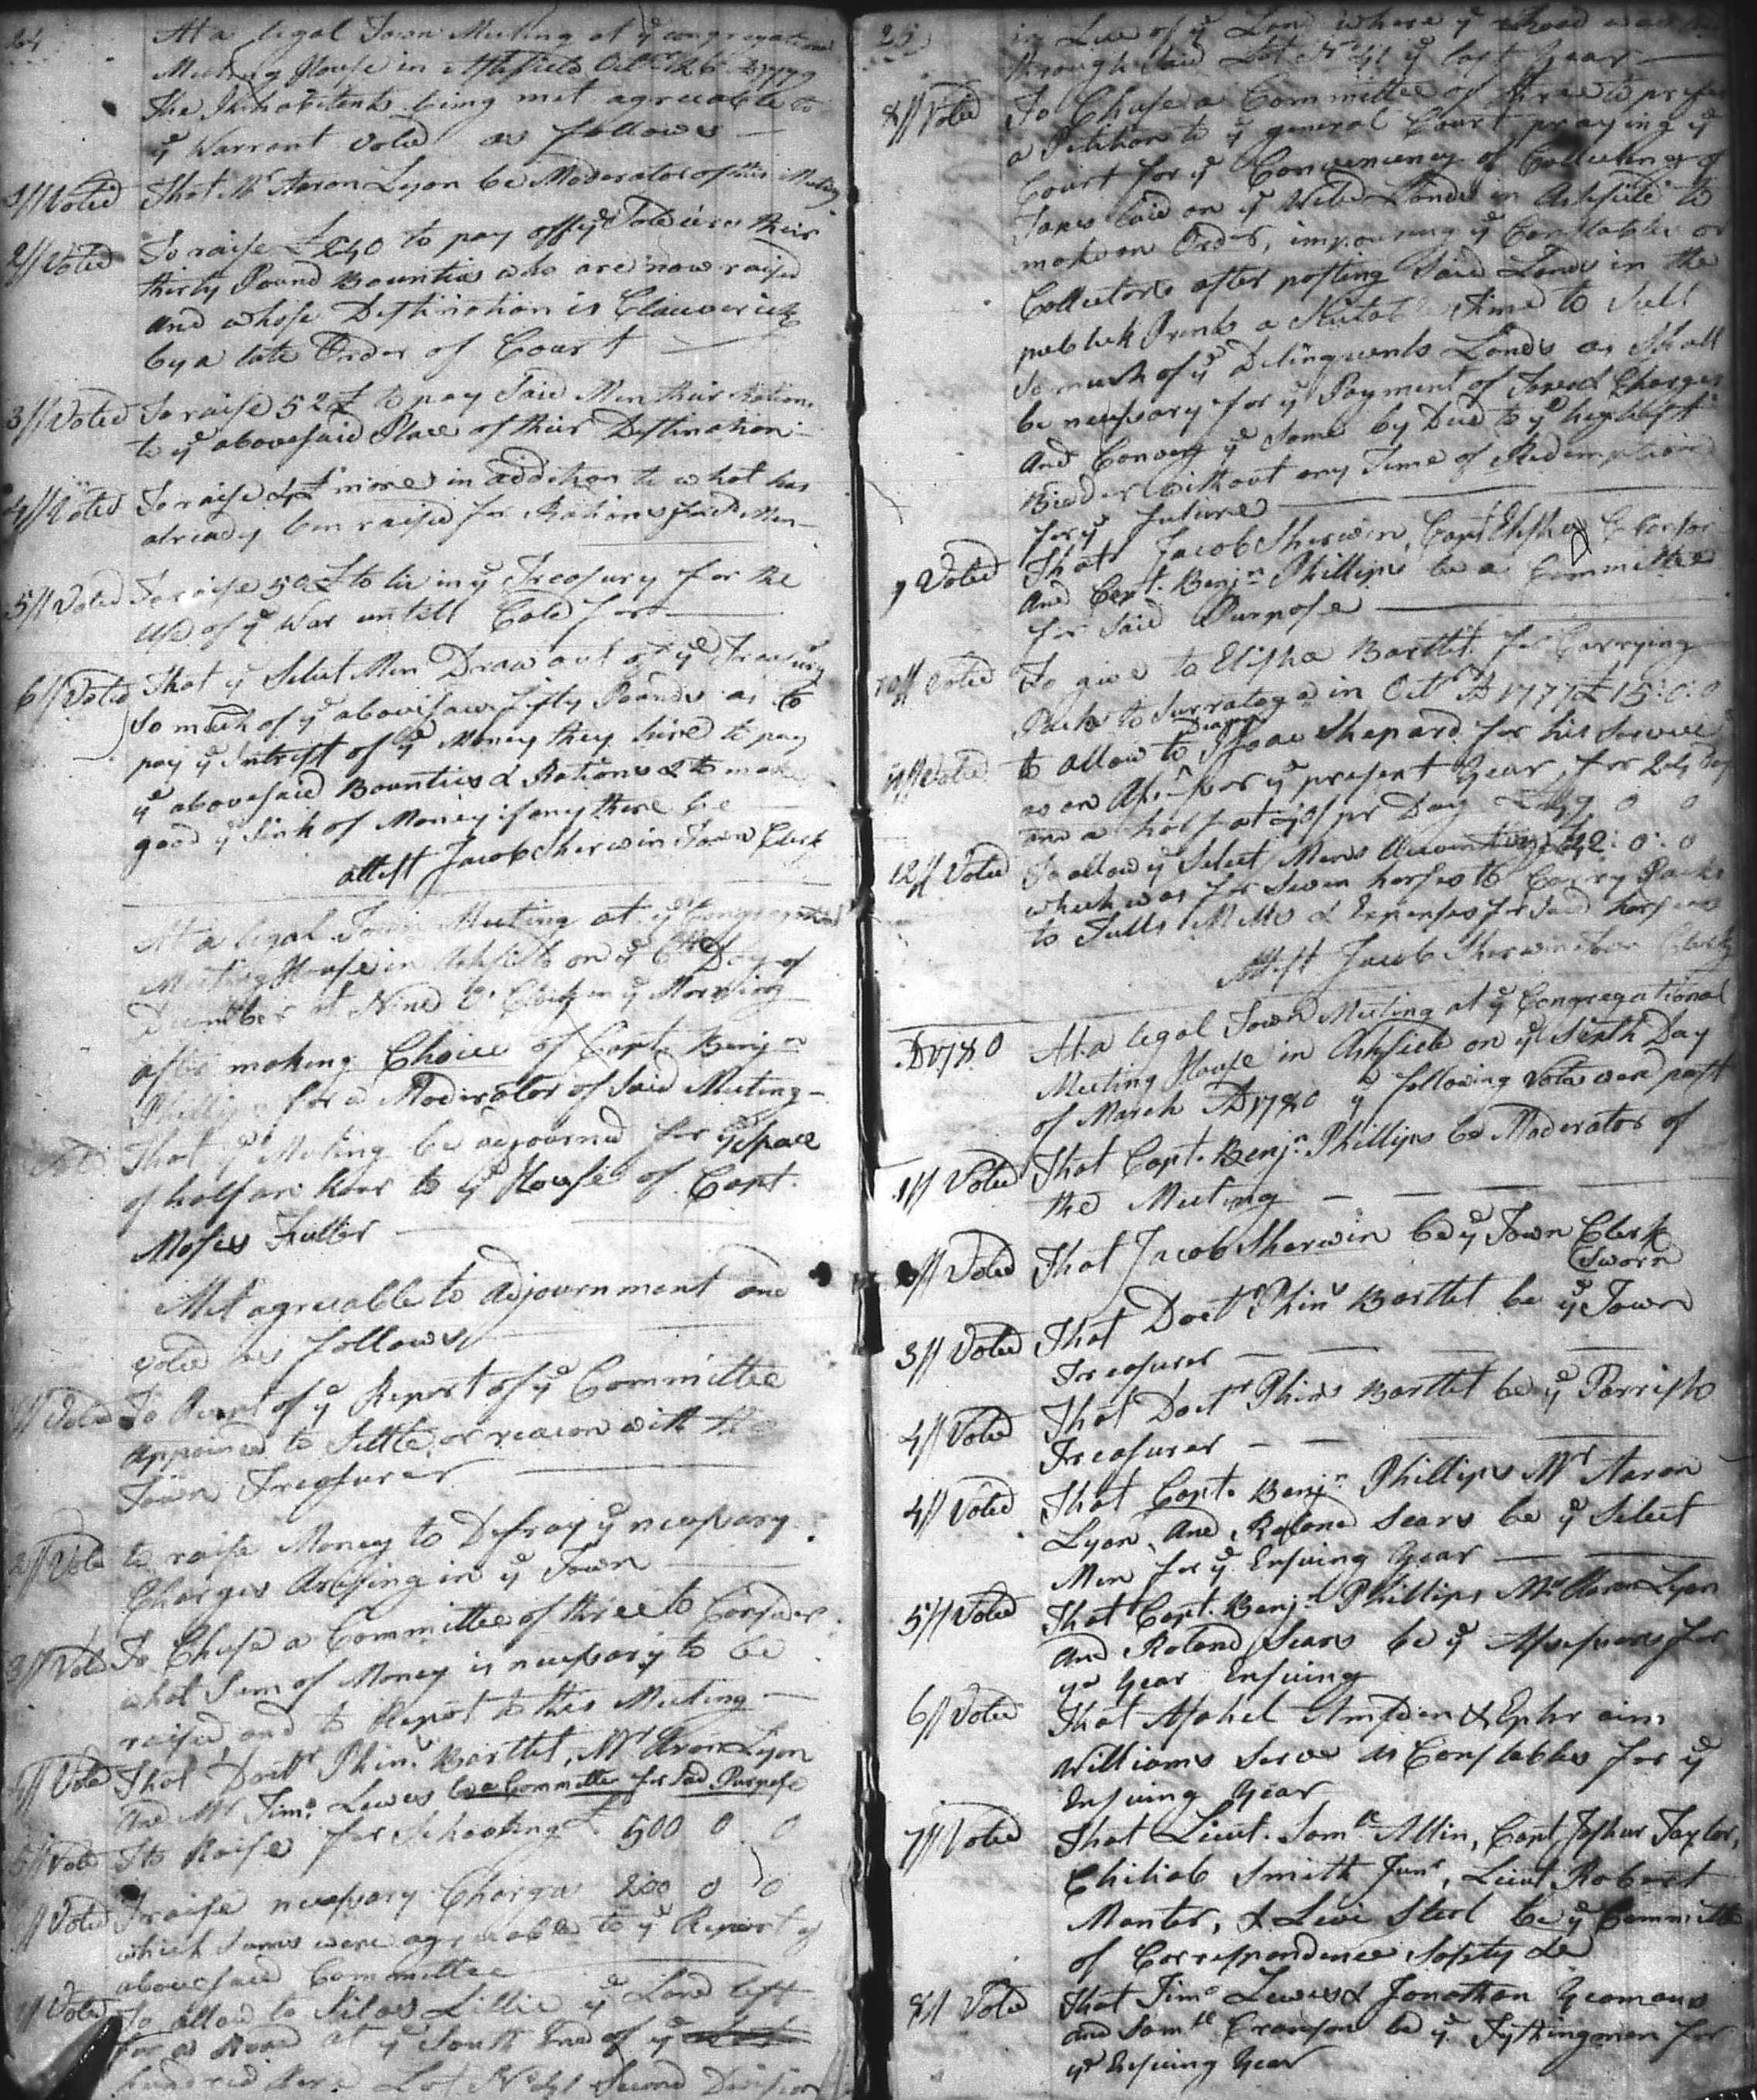 24
At a legal Town Meeting at ye congregational
Meeting House in Ashfield Octr 26 1779
The Inhabitents being met agreeable to
ye Warrant voted as follows —
1// Voted That Mr Aaron Lyon be Moderator of this Meeting
2// Voted To raise £240 to pay off ye Soldiers their
thirty Pound Bounties who are now raised
and whose Destination is Claverick
by a late Order of Court —
3// Voted To raise 52£ to pay Said Men their Rations
to ye abovesaid Place of their Destination —
4// Voted To raise more in addition to what has
already ben raised for Rations for Men —
5// Voted To raise 50£ to lie in ye Treasury for the
Use of ye War untill Cald for —
6// Voted That ye Select Men Draw out of ye Treasury
So much of ye abovesaid Fifty Pounds as to
pay ye Intrest of ye Money they hired to pay
ye abovesaid Bounties & Rations & to make
good ye Sink of Money if any there be —
attest Jacob Sherwin Town Clerk
At a legal Town Meeting at ye Congregational
Meeting House in Ashfield on ye 6th Day of
December at Nine O Clock in ye Morning
after making Choice of Capt. Benjn
Phillips for a Moderator of Said Meeting —
Voted That ye Meeting be adjourned for ye Space
of half an hour to ye House of Capt.
Moses Fuller —
Met agreeable to adjournment and
voted as follows
1// Voted To Accept of ye Report of ye Committee
appoined to Settle or reacon with the
Town Treasurer —
2// Vote to raise Money to Defray ye necessary
Charges Arising in ye Town —
3// Voted To Chuse a Committee of three to Consider
what Sum of Money is necessary to be
raised, and to Report to this Meeting —
4// Voted That Doctr Phins Bartlet, Mr Aron Lyon
and Mr Timo Lewes be a Committee for Said Purpose
5// Vote To Raise for Schooling £ 500 0 0
// Voted To raise necessary Charges 200 0 0
which Sums were agreeable to ye Report of
abovesaid Committee —
// Voted To allow to Silas Lillie ye Land left
for a Road at ye South End of ye
hundred Acre Lot No 41 Second Division
25
in Lue of ye Land where ye Road was
through Said Lot No 41 ye last Year —
8// Voted To Chuse a Committee of three to prefer
a Petition to ye general Court praying ye
Court for ye Conveniency of Collecting of
Taxes laid on ye Wild Lands in Ashfield to
make an Order, impouring ye Constables or
Collectors after posting Said Lands in the
publick Prints a Sutable Time to Sell
So much of ye Delinquents Lands as Shall
be necessary for ye Payment of Taxes & Charges
and Convey ye Same by Deed to ye highest
Bidder without any Time of Redemption
for ye future —
9 Voted That Jacob Sherwin, Capt Elisha
and Capt. Benjn Phillips be a Committee
for Said Purpose —
10// Voted To give to Elisha Bartlit for Carrying
Packs to Surratoga in Octr AD 1777 £15:0:0
11// Voted to allow to Deacn Isaac Shepard for his Service
as an Assr for ye present Year, for 24 Day
and a half at pr Day £49 0 0
12// Voted To allow ye Select Mens Accompt 42:0:0
which was for Seven horses to Carry Packs
to Falls & Expenses for Said horses
Attest Jacob Sherwin Town Clerk
AD 1780 At a legal Town Meeting at ye Congregational
Meeting House in Ashfield on ye Sixth Day
of March AD 1780 ye following Votes were past
1// Voted That Capt. Benjn Phillips be Moderator of
the Meeting —
2// Voted That Jacob Sherwin be ye Town Clerk
Sworn
3// Voted That Doctr Phins Bartlet be ye Town
Treasurer —
4// Voted That Doctr Phins Bartlet be ye Parrish
Treasurer —
4// Voted That Capt. Benjn Phillips Mr Aaron
Lyon, and Roland Sears be ye Select
Men for ye Ensuing Year —
5// Voted That Capt. Benjn Phillips Mr Aaron Lyon
and Roland Sears be ye Assessors for
ye Year Ensuing
6// Voted That Asahel Amsden & Ephraim
Williams Serve as Constables for ye
Ensuing Year
7// Voted That Lieut. Samll Allin, Capt Joshua Taylor,
Chiliab Smith Junr, Lieut Robert
Manter, & Levi Steel be ye Committe
of Correspondence Safety &c
8// Voted That Timo Lewes & Jonathan Yeomans
and Samll Cranson be ye Tythingmen for
ye Ensuing Year